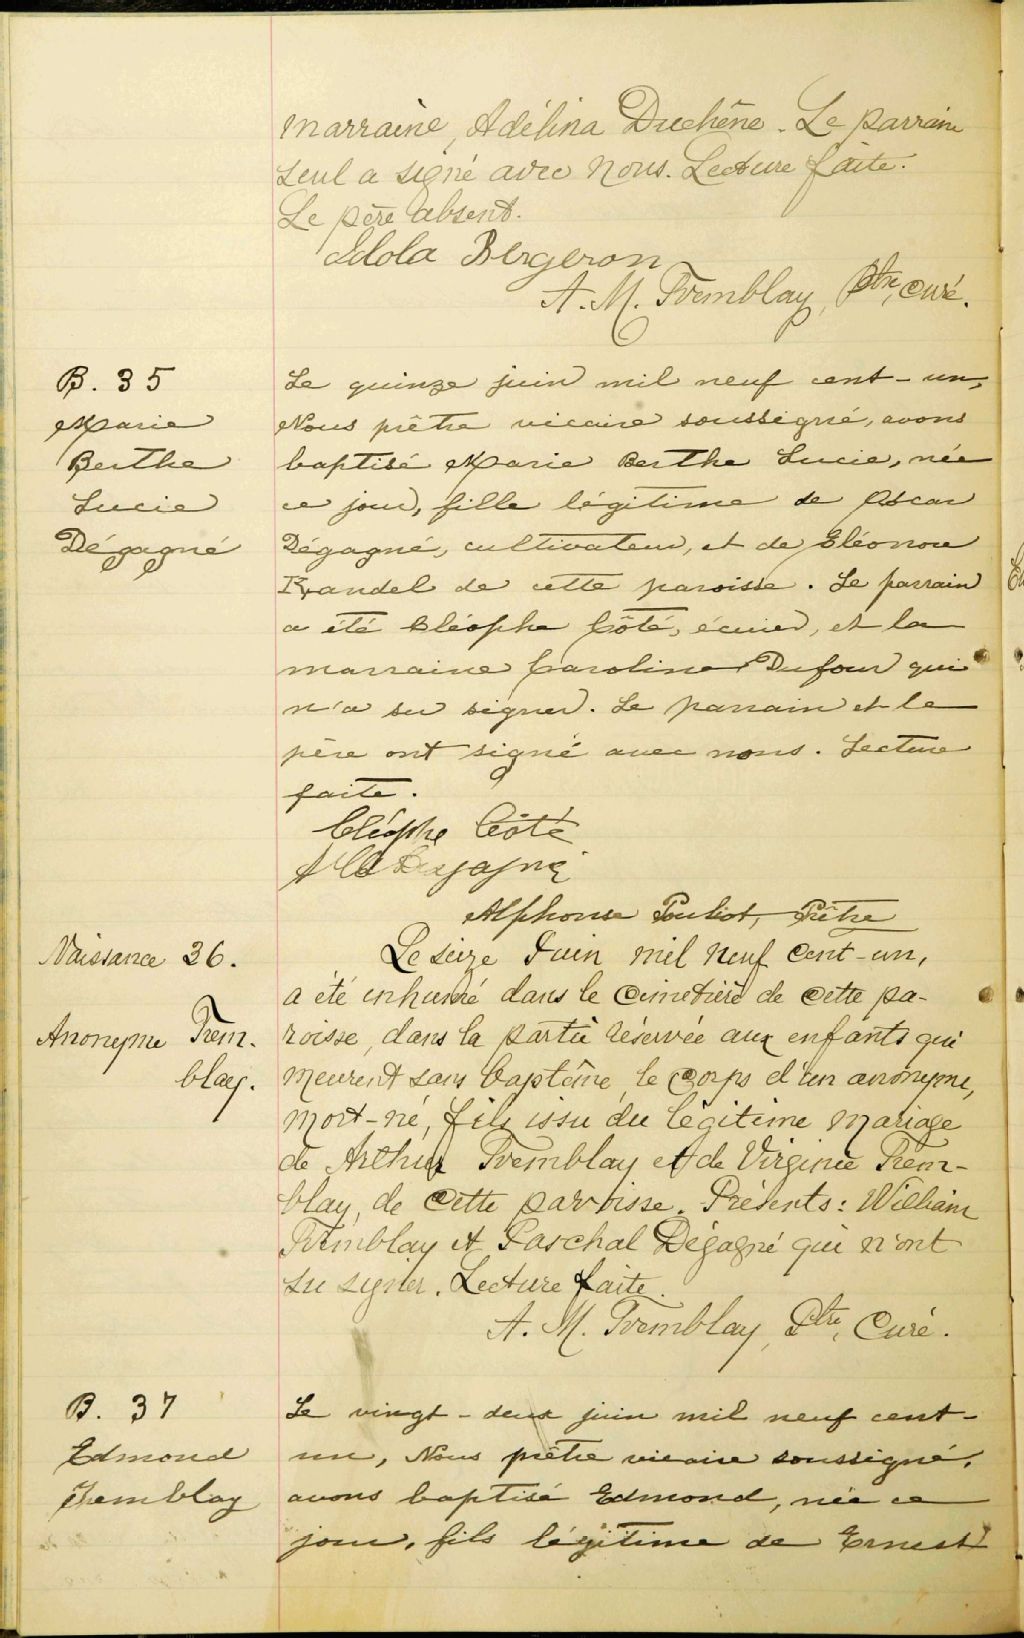 marraine, Adélina Duchêne. Le parrain
seul a signé avec nous. Lecture faite.
Le père absent.
Idola Bergeron
A. M. Tremblay, Ptre, Curé.
B. 35
Marie
Berthe
Lucie
Dégagné
Le quinze juin mil neuf cent-un,
Nous prêtre vicaire soussigné, avons
baptisé Marie Berthe Lucie, née
ce jour, fille légitime de Oscar
Dégagné, cultivateur, et de Eléonore
Randel de cette paroisse. Le parrain
a été Cléophe Côté, écuier, et la
marraine Caroline Dufour qui
n'a su signer. Le parrain et le
père ont signé avec nous. Lecture
faite.
Cléophe Côté
Degagné
Alphonse Pouliot, Prêtre
Naissance 36.
Anonyme Trem-
blay.
Le seize Juin mil neuf cent-un,
a été inhumé dans le cimetière de cette pa-
roisse, dans la partie réservée aux enfants qui
meurent sans baptême, le corps d'un anonyme,
mort-né, fils issu du légitime mariage
de Arthur Tremblay et de Virginie Trem-
blay, de cette paroisse. Présents: William
Tremblay et Paschal Dégagné qui n'ont
su signer. Lecture faite.
A. M. Tremblay, Ptre, Curé.
B. 37
Edmond
Tremblay
Le vingt-deux juin mil neuf cent-
un, Nous prêtre vicaire soussigné,
avons baptisé Edmond, née ce
jour, fils légitime de Ernest